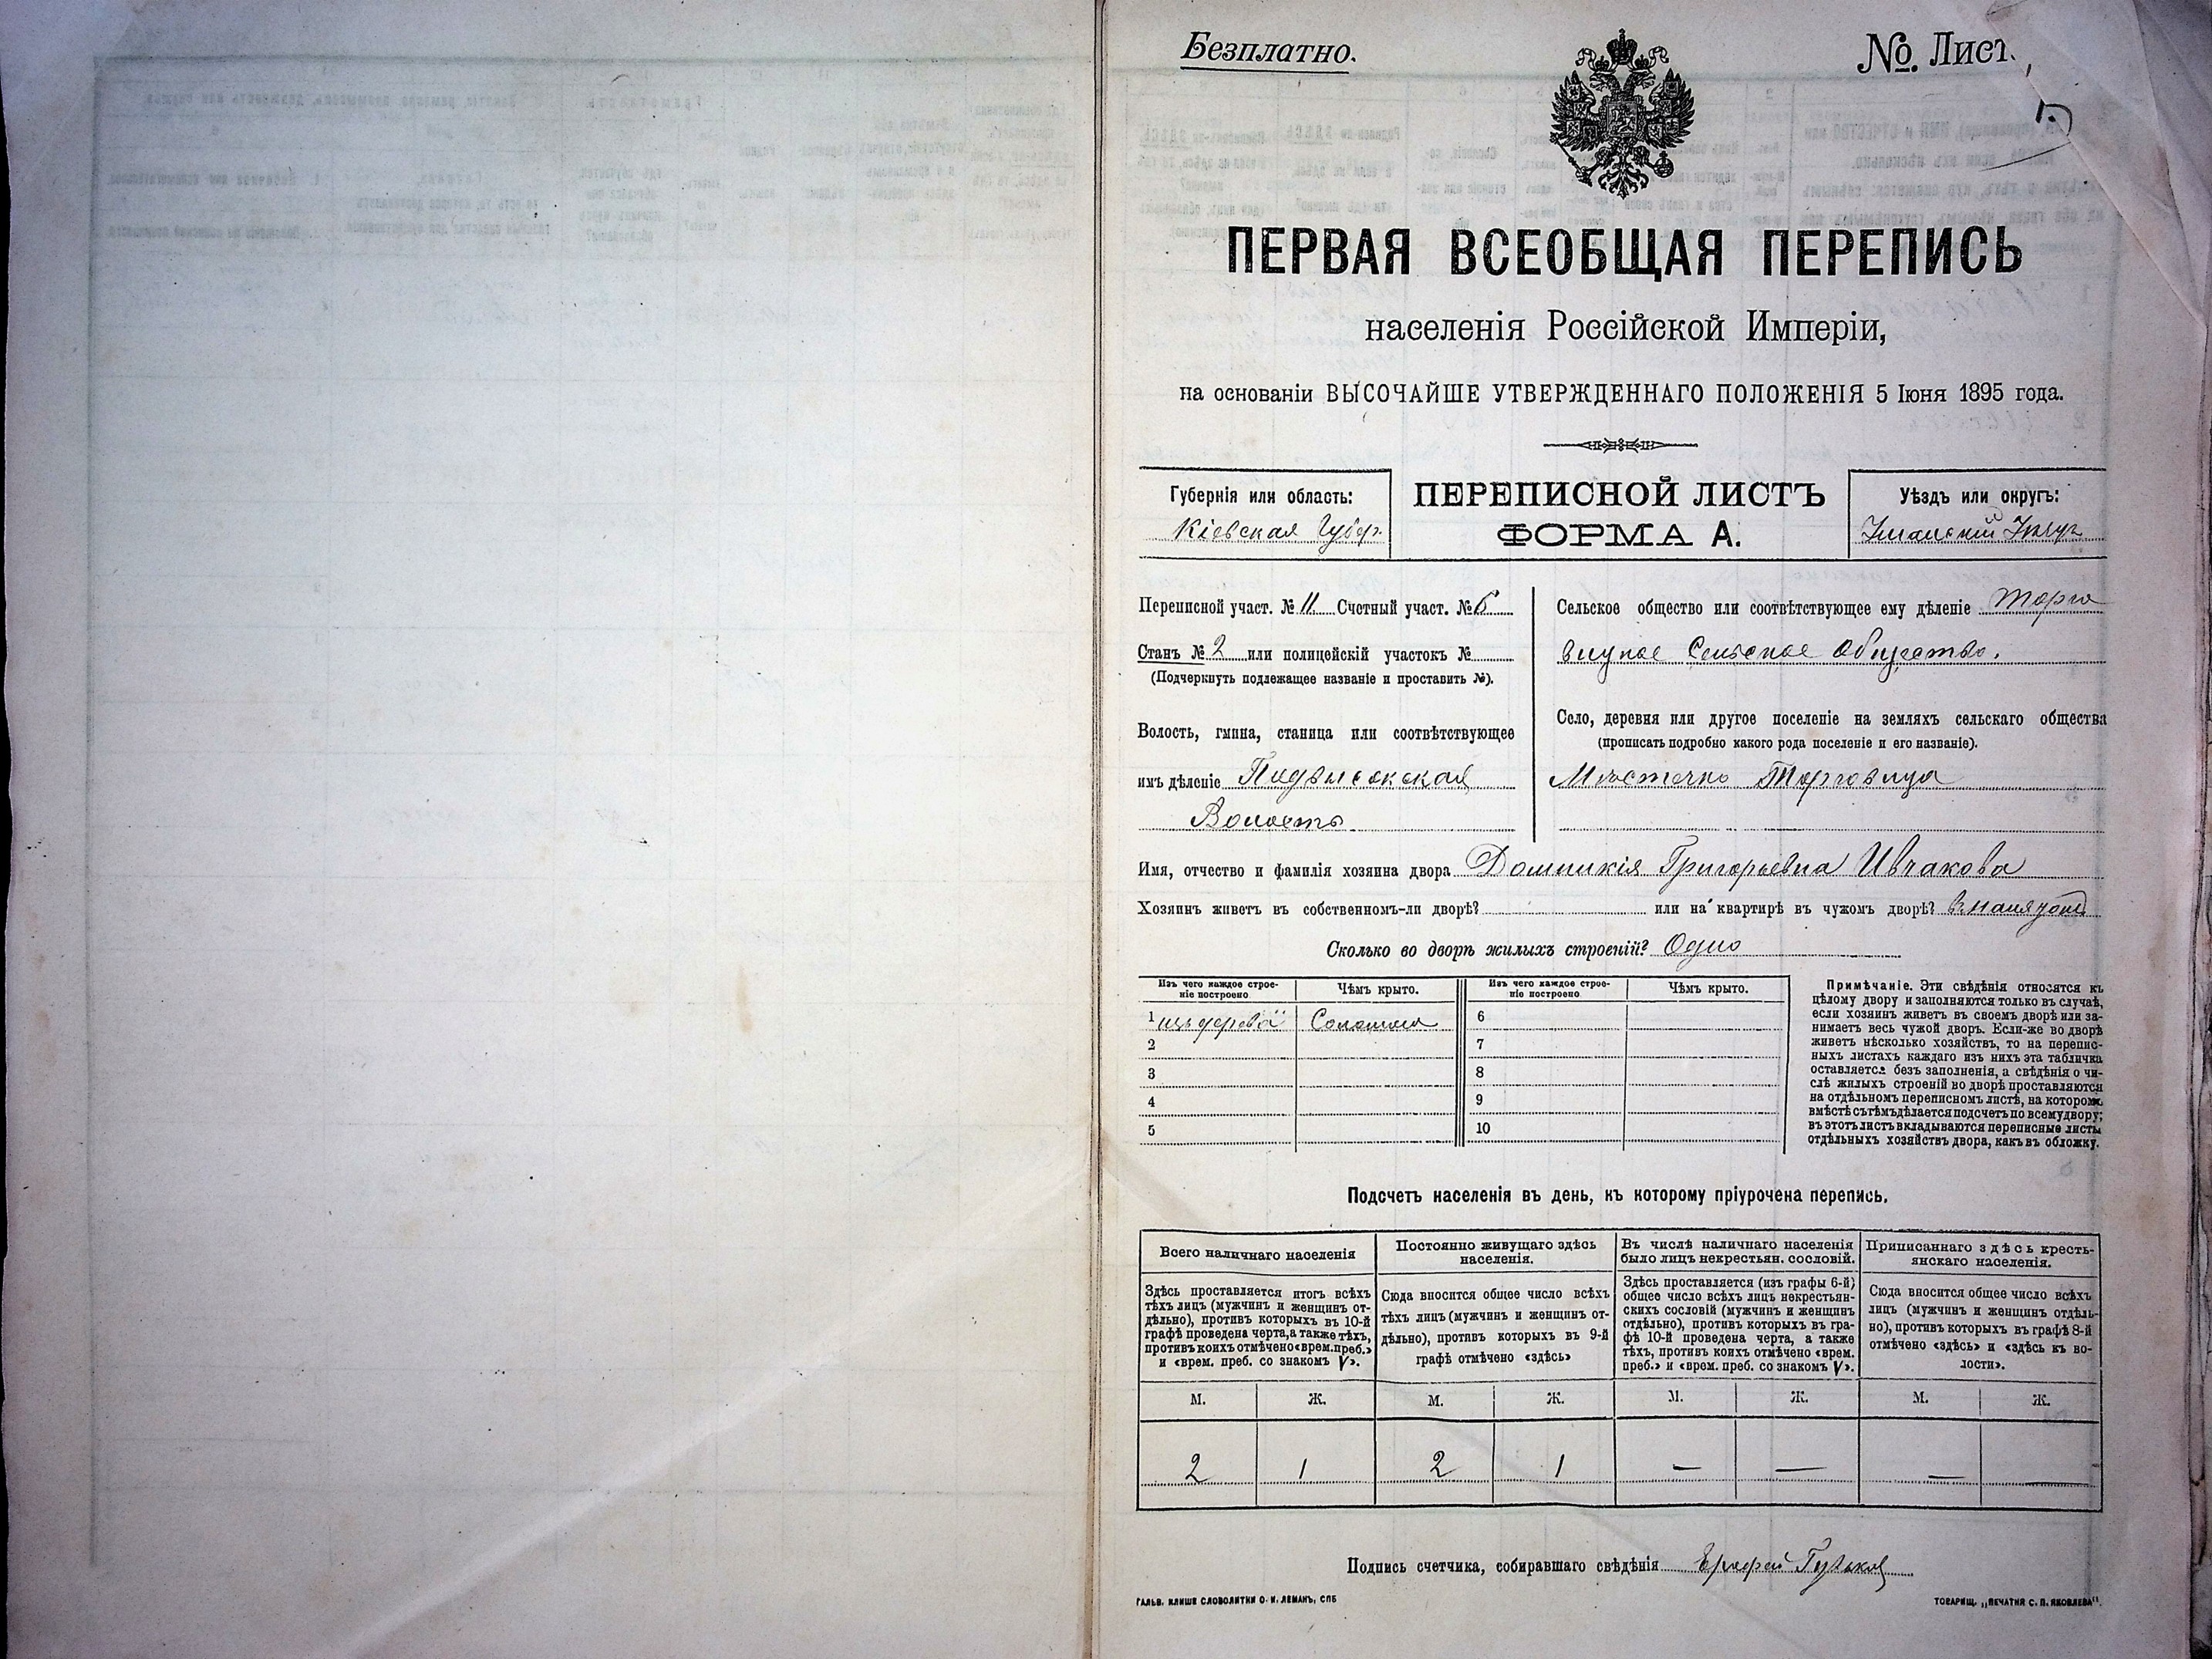 Безплатно.
№ Лист.
ПЕРВАЯ ВСЕОБЩАЯ ПЕРЕПИСЬ
населенія Россійской Имперіи,
на основаніи ВЫСОЧАЙШЕ УТВЕРЖДЕННАГО ПОЛОЖЕНІЯ 5 Іюня 1895 года.
Губернія или область:
Кіевская Губер.
ПЕРЕПИСНОЙ ЛИСТЪ
ФОРМА А.
Уѣздъ или округъ:
Уманскій
Переписной участ. № 11 Счетный участ. №
Станъ № 2 или полицейскій участокъ №
(Подчеркнуть подлежащее названіе и проставить №).
Волость, гмина, станица или соотвѣтствующее
имъ дѣленіе Подвысокская
Волость
Сельское общество или соотвѣтствующее ему дѣленіе Торго
вицкое Сельское Общество.
Село, деревня или другое поселеніе на земляхъ сельскаго общества
(прописать подробно какого рода поселеніе и его названіе).
Мѣстечко Торговица
Имя, отчество и фамилія хозяина двора Домникія Григорьевна Ивчакова
Хозяинъ живетъ въ собственномъ-ли дворѣ? или на квартирѣ въ чужомъ дворѣ?
Сколько во дворѣ жилыхъ строеній? Одно
Изъ чего каждое строе-
ніе построено
Чѣмъ крыто.
Изъ чего каждое строе-
ніе построено
Чѣмъ крыто.
1 изъ дерева Соломою
2
3
4
5
6
7
8
9
10
Примѣчаніе. Эти свѣдѣнія относятся къ
цѣлому двору и заполняются только въ случаѣ,
если хозяинъ живетъ въ своемъ дворѣ или за-
нимаетъ весь чужой дворъ. Если-же во дворѣ
живетъ нѣсколько хозяйствъ, то на перепис-
ныхъ листахъ каждаго изъ нихъ эта табличка
оставляется безъ заполненія, а свѣдѣнія о чи-
слѣ жилыхъ строеній во дворѣ проставляются
на отдѣльномъ переписномъ листѣ, на которомъ
вмѣстѣ съ тѣмъ дѣлается подсчетъ по всему двору;
въ этотъ листъ вкладываются переписные листы
отдѣльныхъ хозяйствъ двора, какъ въ обложку.
Подсчетъ населенія въ день, къ которому пріурочена перепись.
Всего наличнаго населенія
Здѣсь проставляется итогъ всѣхъ
тѣхъ лицъ (мужчинъ и женщинъ от-
дѣльно), противъ которыхъ въ 10-й
графѣ проведена черта, а также тѣхъ,
противъ коихъ отмѣчено «врем. преб.»
и «врем. преб. со знакомъ V».
Постоянно живущаго здѣсь
населенія.
Сюда вносится общее число всѣхъ
тѣхъ лицъ (мужчинъ и женщинъ от-
дѣльно), противъ которыхъ въ 9-й
графѣ отмѣчено «здѣсь»
Въ числѣ наличнаго населенія
было лицъ некрестьян. сословій.
Здѣсь проставляется (изъ графы 6-й)
общее число всѣхъ лицъ некрестьян-
скихъ сословій (мужчинъ и женщинъ
отдѣльно), противъ которыхъ въ гра-
фѣ 10-й проведена черта, а также
тѣхъ, противъ коихъ отмѣчено «врем.
преб.» и «врем. преб. со знакомъ V».
Приписаннаго здѣсь кресть-
янскаго населенія.
Сюда вносится общее число всѣхъ
лицъ (мужчинъ и женщинъ отдѣль-
но), противъ которыхъ въ графѣ 8-й
отмѣчено «здѣсь» и «здѣсь къ во-
лости».
М. Ж. М. Ж. М. Ж. М. Ж.
2 1 2 1 — — — —
Подпись счетчика, собиравшаго свѣдѣнія
ГАЛЬВ. КЛИШЕ СЛОВОЛИТНИ О. И. ЛЕМАНЪ, СПБ
ТОВАРИЩ. „ПЕЧАТНЯ С. П. ЯКОВЛЕВА".